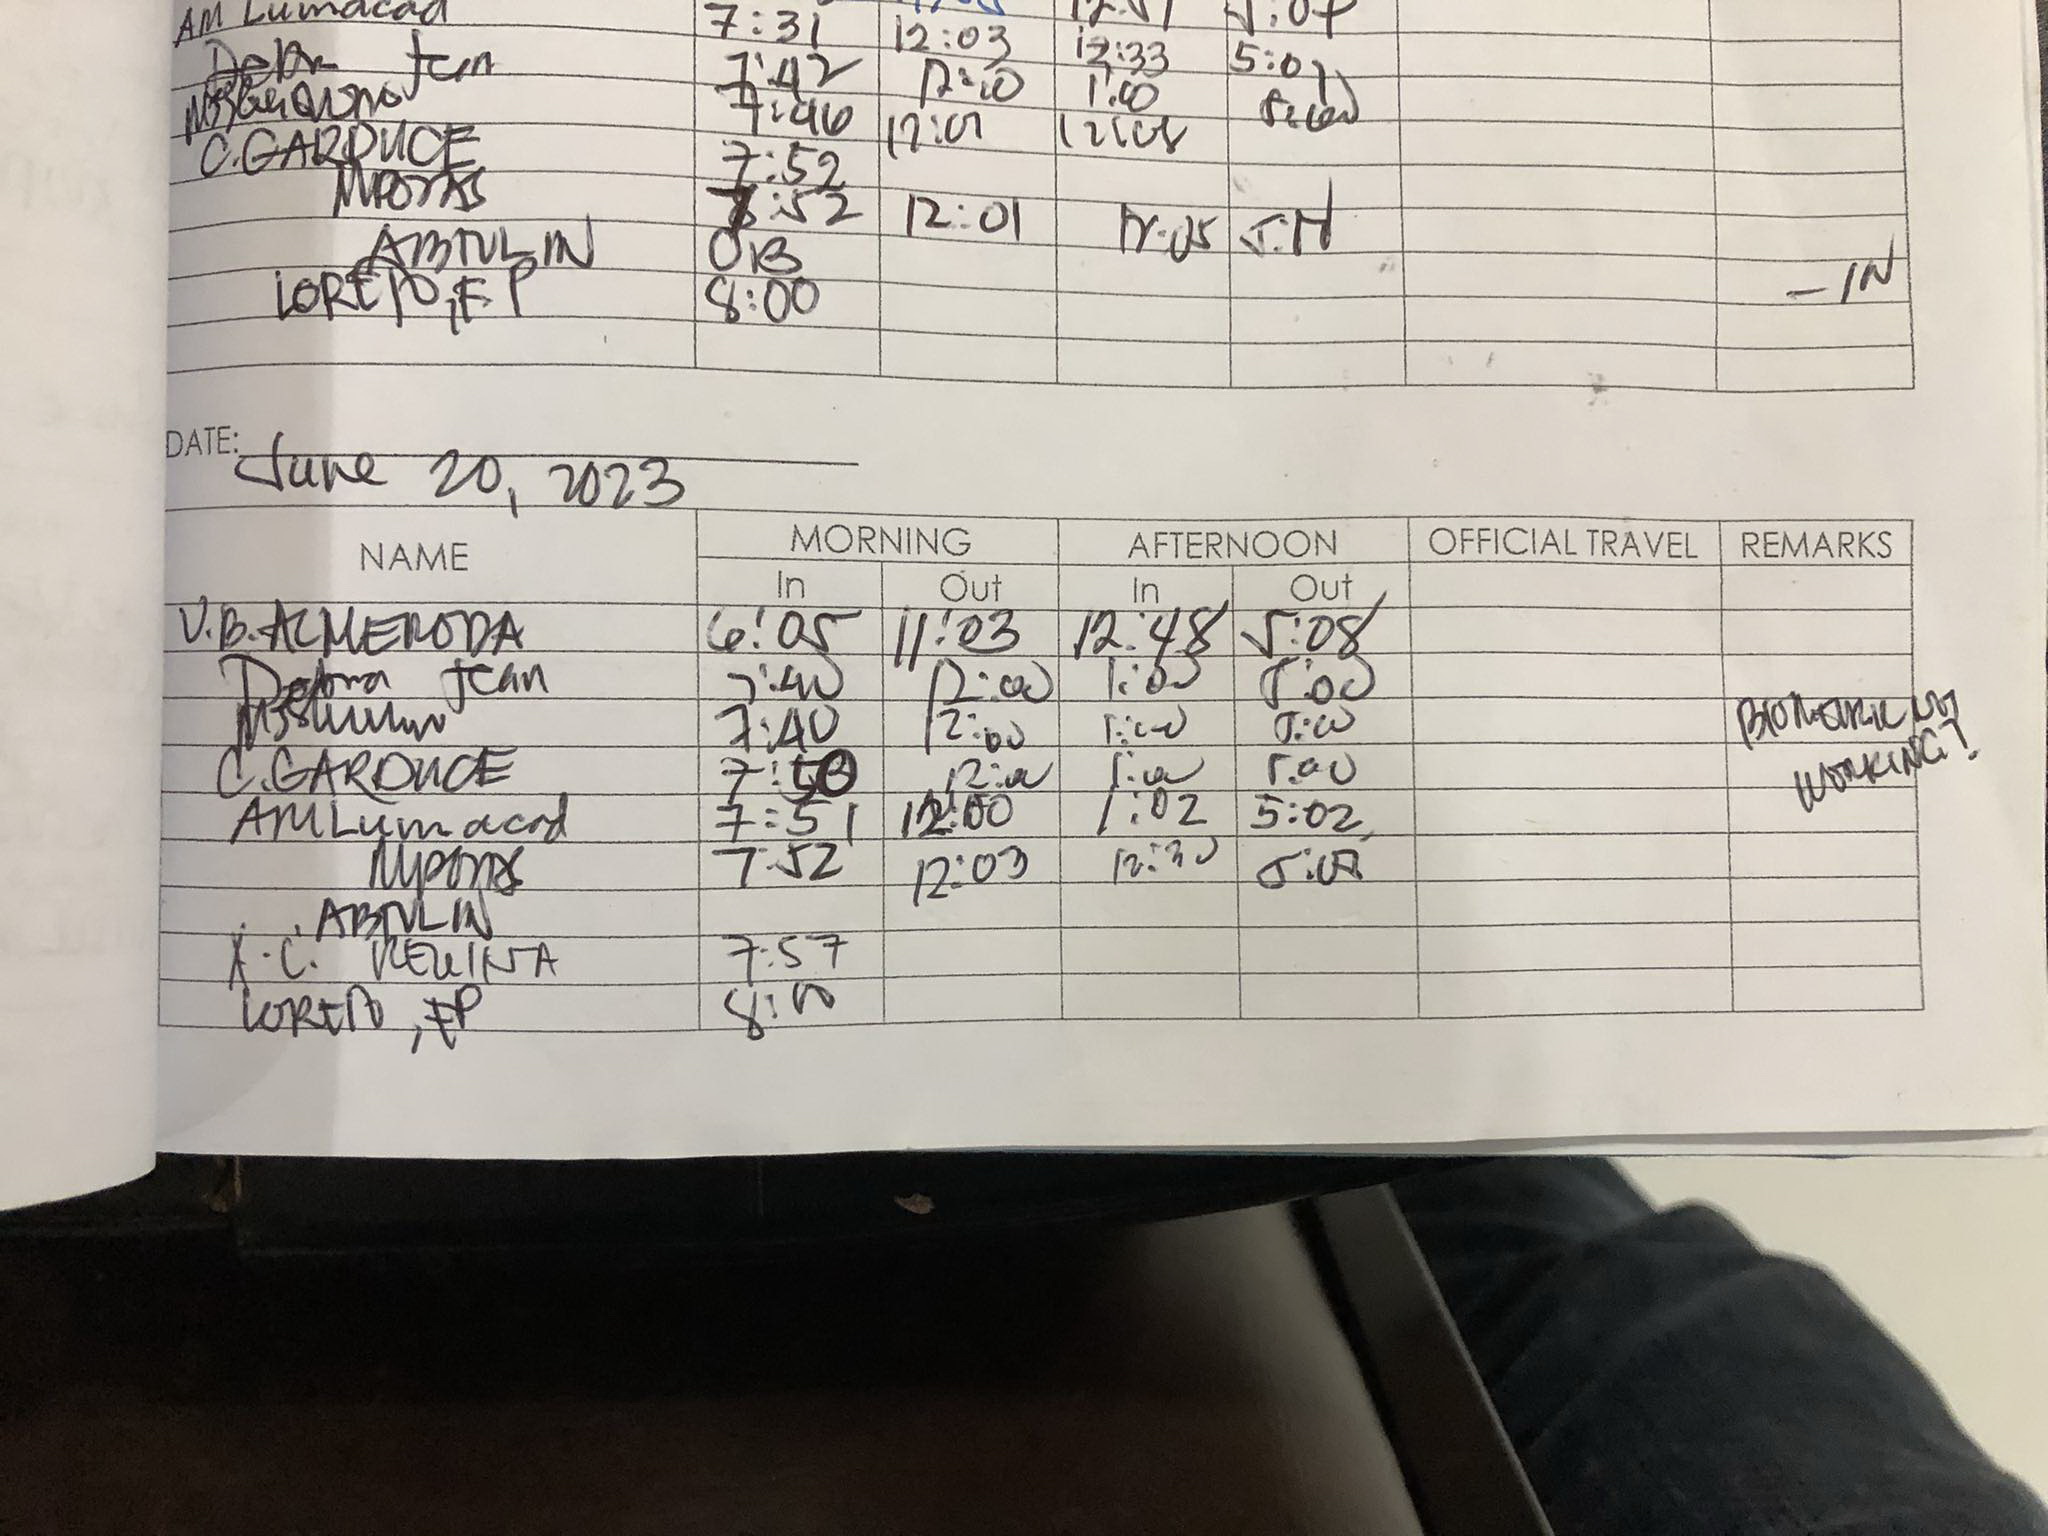 AM Lumacad 7:31
Debra Jean 7:42 12:03 12:33 5:01
7:46 12:10 1:00 5:00
C. GARDUCE 7:52 12:01
7:52 12:01 5:11
ABTULIN OB
LORETO, EP 8:00 - IN
DATE: June 20, 2023
NAME MORNING AFTERNOON OFFICIAL TRAVEL REMARKS
In Out In Out
V.B. ALMERODA 6:05 11:03 12:48 5:08
Debra Jean 7:40 12:00 1:00 5:00
7:40 12:00 1:00 5:00 BIOMETRIC NOT
C. GARDUCE 7:50 12:00 1:00 5:00 WORKING!
AM Lumacad 7:51 12:00 1:02 5:02
7:52 12:03 12:30
ABTULIN
7:57
LORETO, EP 8:00